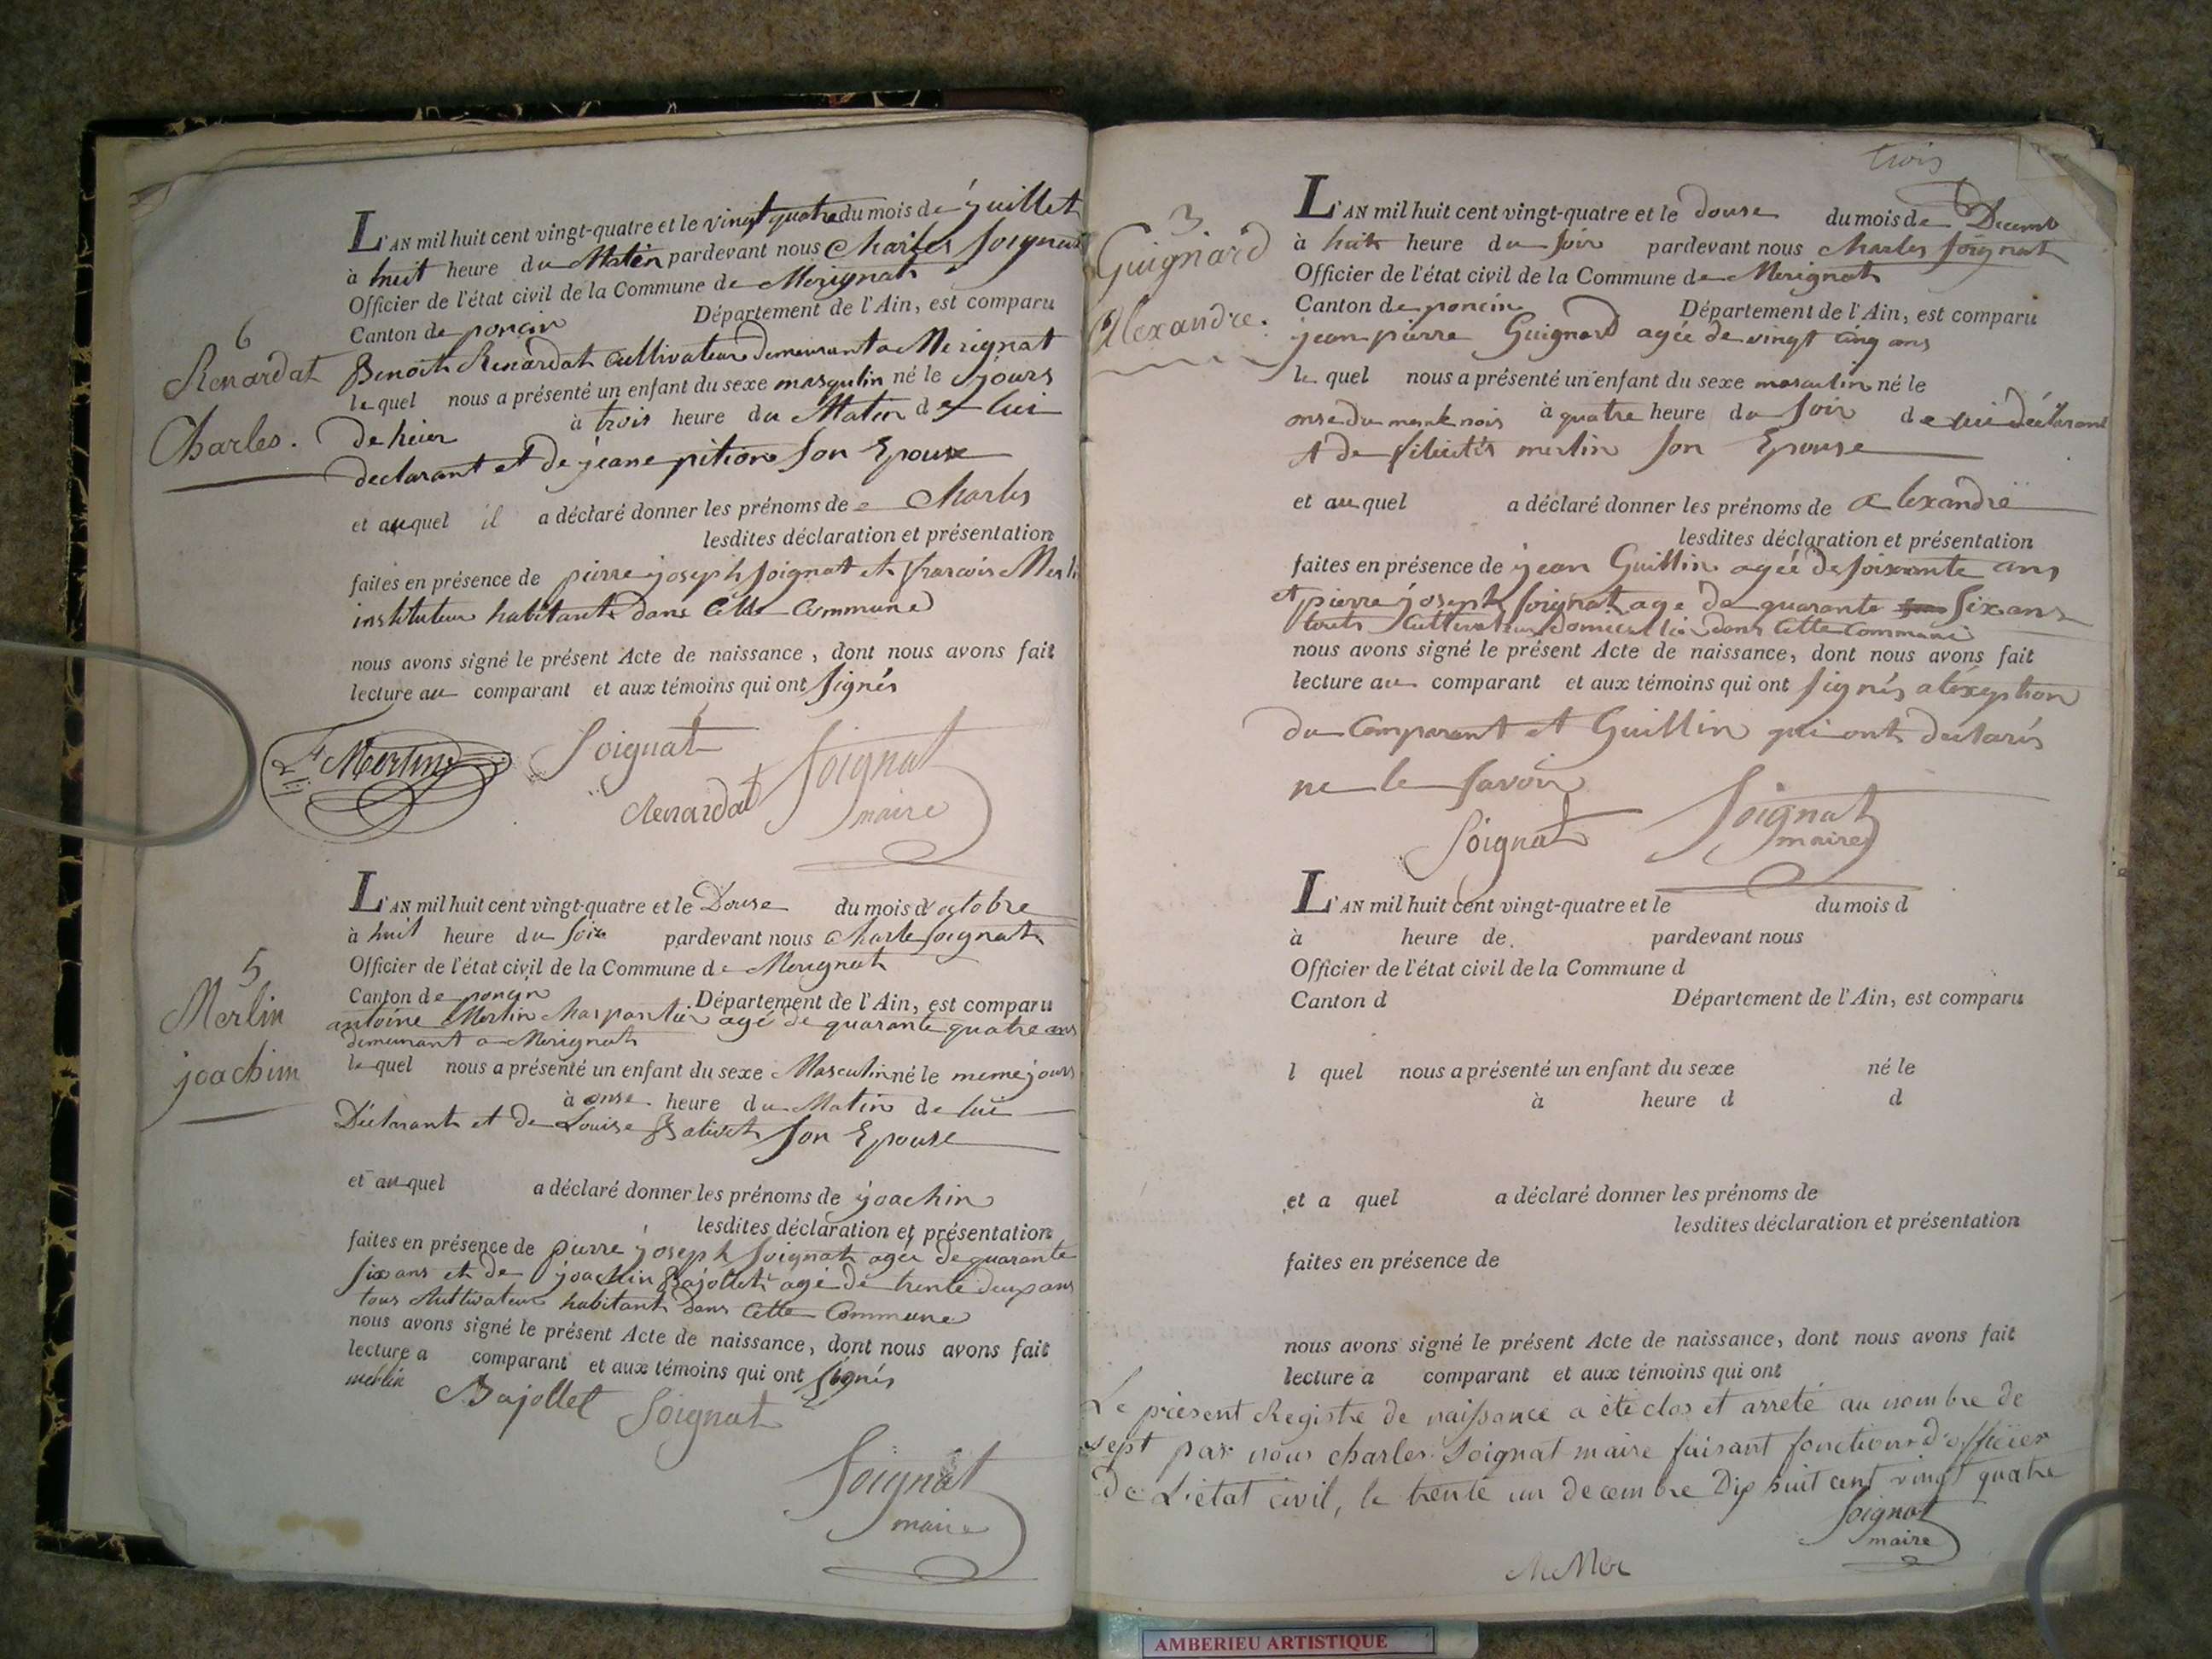 6
Renardat
Charles.
L'AN mil huit cent vingt-quatre et le vingt quatre du mois de juillet
à huit heure du Matin pardevant nous Charles Soignat
Officier de l'état civil de la Commune de Merignat
Canton de poncin Département de l'Ain, est comparu
Benoit Renardat cultivateur demeurant a Merignat
le quel nous a présenté un enfant du sexe masqulin né le jours
de hier à trois heure du Matin de lui
declarant et de jeane pition son Epouse
et auquel il a déclaré donner les prénoms de Charles
lesdites déclaration et présentation
faites en présence de pierre joseph soignat et francois Merlin
instituteur habitant dans cette commune
nous avons signé le présent Acte de naissance, dont nous avons fait
lecture au comparant et aux témoins qui ont signés
F Merlin Soignat
Renardat Soignat
maire
5
Merlin
joachim
L'AN mil huit cent vingt-quatre et le Douse du mois d'octobre
à huit heure du soir pardevant nous Charle soignat
Officier de l'état civil de la Commune de Merignat
Canton de poncin Département de l'Ain, est comparu
antoine Merlin charpantier agé de quarante quatre ans
demeurant a Merignat
le quel nous a présenté un enfant du sexe Masculin né le meme jours
à onse heure du Matin de lui
Déclarant et de Louise Balivet son Epouse
et au quel a déclaré donner les prénoms de joachin
lesdites déclaration et présentation
faites en présence de pierre joseph soignat agée de quarante
six ans et de joachin Bajollet agé de trente deux ans
tous cultivateur habitant dans cette Commune
nous avons signé le présent Acte de naissance, dont nous avons fait
lecture a comparant et aux témoins qui ont signés
merlin Bajollet Soignat
Soignat
maire
trois
3
Guignard
Alexandre.
L'AN mil huit cent vingt-quatre et le douse du mois de Decemb
à huit heure du soir pardevant nous Charles soignat
Officier de l'état civil de la Commune de Merignat
Canton de poncin Département de l'Ain, est comparu
jean pierre Guignard agée de vingt cinq ans
le quel nous a présenté un enfant du sexe masculin né le
onse du meme mois à quatre heure du soir de lui déclarant
et de félicités merlin son Epouse
et au quel a déclaré donner les prénoms de alexandre
lesdites déclaration et présentation
faites en présence de jean Guillin agée de soixante ans
et pierre joseph soignat age de quarante six ans
touts cultivateur domicilié dans cette commune
nous avons signé le présent Acte de naissance, dont nous avons fait
lecture au comparant et aux témoins qui ont signés aléxeption
du Comparant et Guillin qui ont declarés
ne le savoir
Soignat Soignat
maire
L'AN mil huit cent vingt-quatre et le du mois d
à heure de pardevant nous
Officier de l'état civil de la Commune d
Canton d Département de l'Ain, est comparu
l quel nous a présenté un enfant du sexe né le
à heure d d
et a quel a déclaré donner les prénoms de
lesdites déclaration et présentation
faites en présence de
nous avons signé le présent Acte de naissance, dont nous avons fait
lecture a comparant et aux témoins qui ont
Le présent Registre de naissance a été clos et arreté au nombre de
sept par nous charles Soignat maire faisant fonction d'officier
De L'état civil, le trente un decembre Dix huit cent vingt quatre
Soignat
maire
AMBERIEU ARTISTIQUE